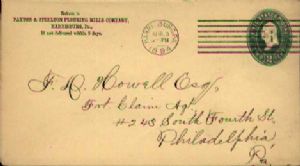 Return to
PAXTON & STEELTON FLOURING MILLS COMPANY,
HARRISBURG, PA.,
If not delivered within 5 days.
HARRISBURG PA.
1894
F. D. Howell Esq.
Frt Claim Agt
#233 South Fourth St.
Philadelphia
Pa.